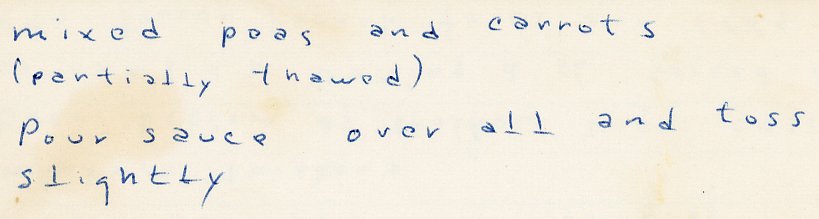 mixed peas and carrots
(partially thawed)
Pour sauce over all and toss
slightly